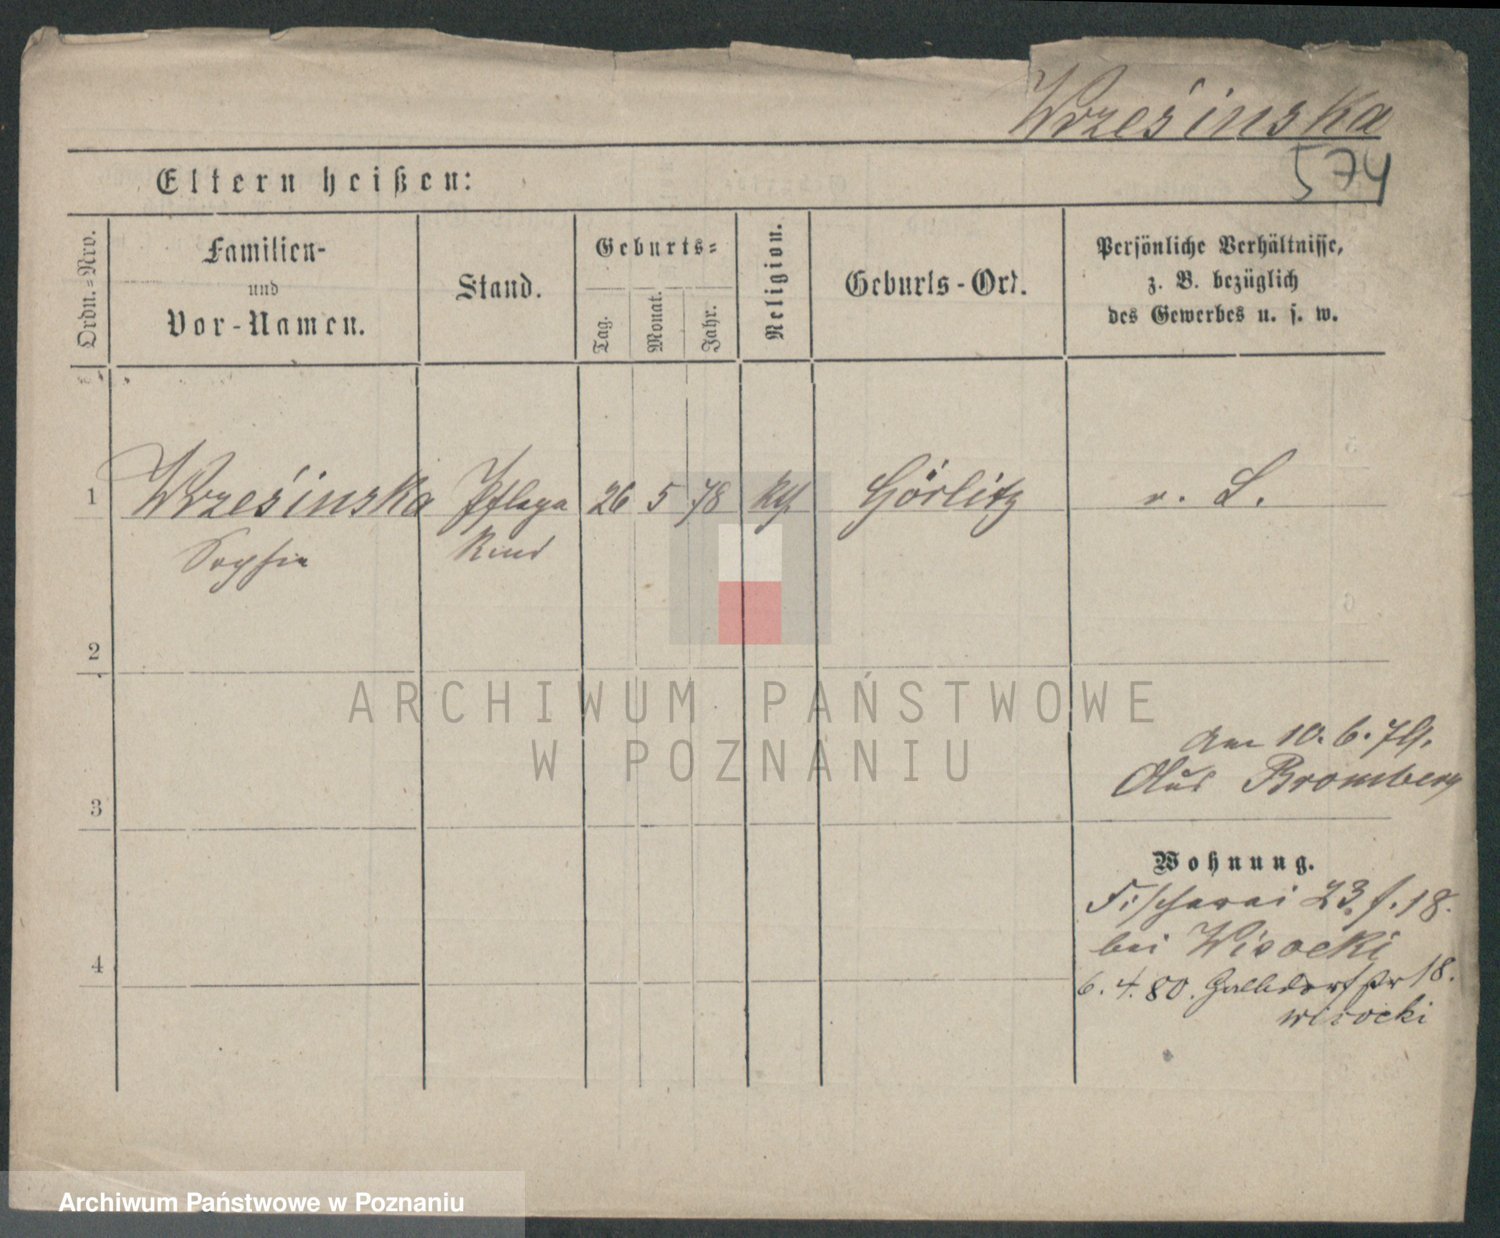 Wrześinska
574
Eltern heißen:
Ordn.-Nro.
Familien-
und
Vor-Namen.
Stand.
Geburts-
Tag.
Monat.
Jahr.
Religion.
Geburts-Ort.
Persönliche Verhältnisse,
z. B. bezüglich
des Gewerbes u. s. w.
1 Wrześinska Pflege 26 5 78 kth Görlitz v. L.
Sophie Kind
2
ARCHIWUM PAŃSTWOWE
W POZNANIU
am 10. 6. 79.
Aus Bromberg
3
Wohnung.
Fischerei 23. f. 18.
bei Wisocki
4
6. 4. 80. Halbdorfstr 18.
wisocki
Archiwum Państwowe w Poznaniu